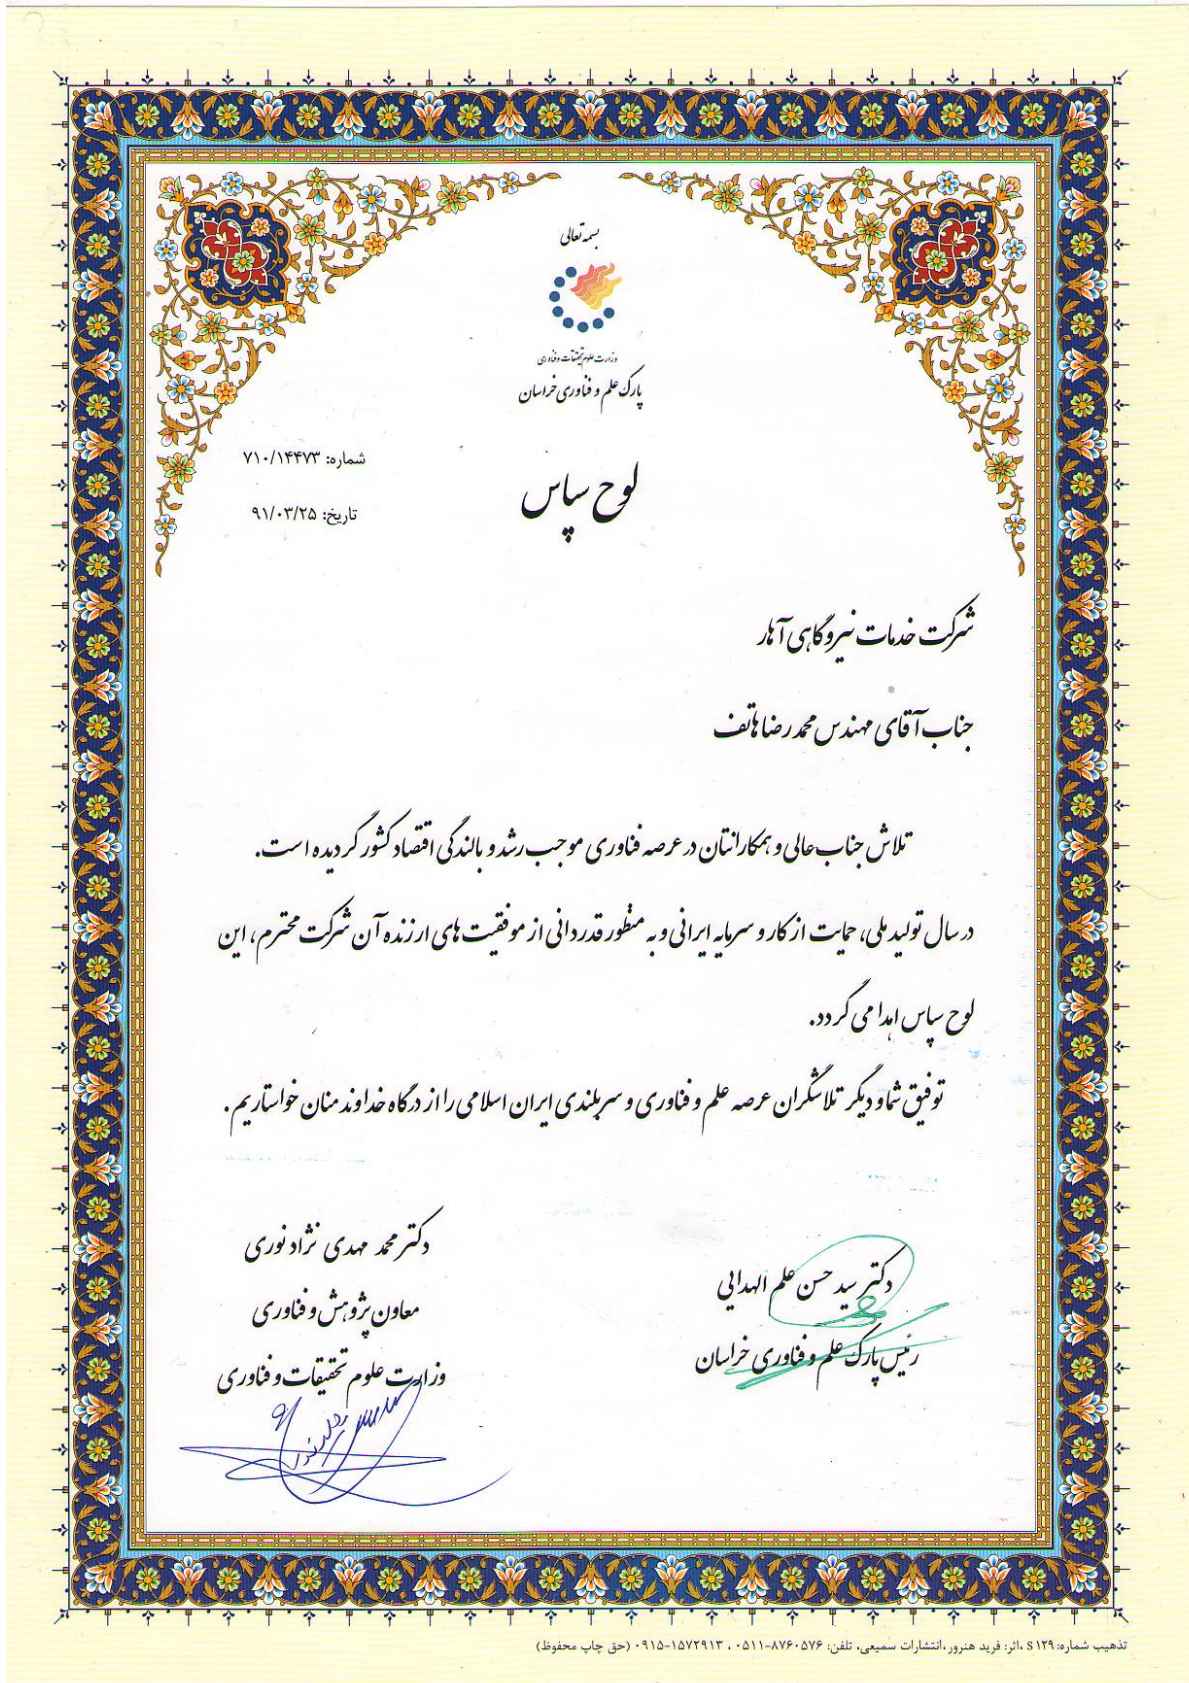 بسمه تعالی
وزارت علوم تحقیقات و فناوری
پارک علم و فناوری خراسان
شماره: ۷۱۰/۱۴۴۷۳
تاریخ: ۹۱/۰۳/۲۵
لوح سپاس
شرکت خدمات نیروگاهی آهار
جناب آقای مهندس محمدرضا هاتف
تلاش جناب عالی و همکارانتان در عرصه فناوری موجب رشد و بالندگی اقتصاد کشور گردیده است.
در سال تولید ملی، حمایت از کار و سرمایه ایرانی و به منظور قدردانی از موفقیت های ارزنده آن شرکت محترم، این
لوح سپاس اهدا می گردد.
توفیق شما و دیگر تلاشگران عرصه علم و فناوری و سربلندی ایران اسلامی را از درگاه خداوند منان خواستاریم.
دکتر سید حسن علم الهدایی
رئیس پارک علم و فناوری خراسان
دکتر محمد مهدی نژاد نوری
معاون پژوهش و فناوری
وزارت علوم تحقیقات و فناوری
تذهیب شماره: S ۱۲۹ ،اثر: فرید هنرور ،انتشارات سمیعی، تلفن: ۸۷۶۰۵۷۶-۰۵۱۱ ، ۱۵۷۲۹۱۳-۰۹۱۵ (حق چاپ محفوظ)